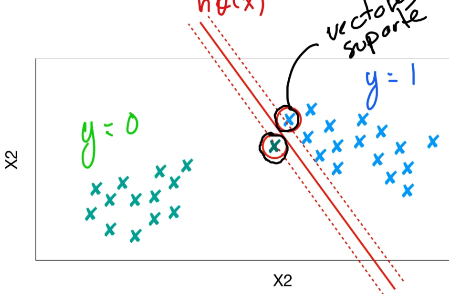 hθ(x)
vectores
suporte
y = 1
y = 0
X2
X2